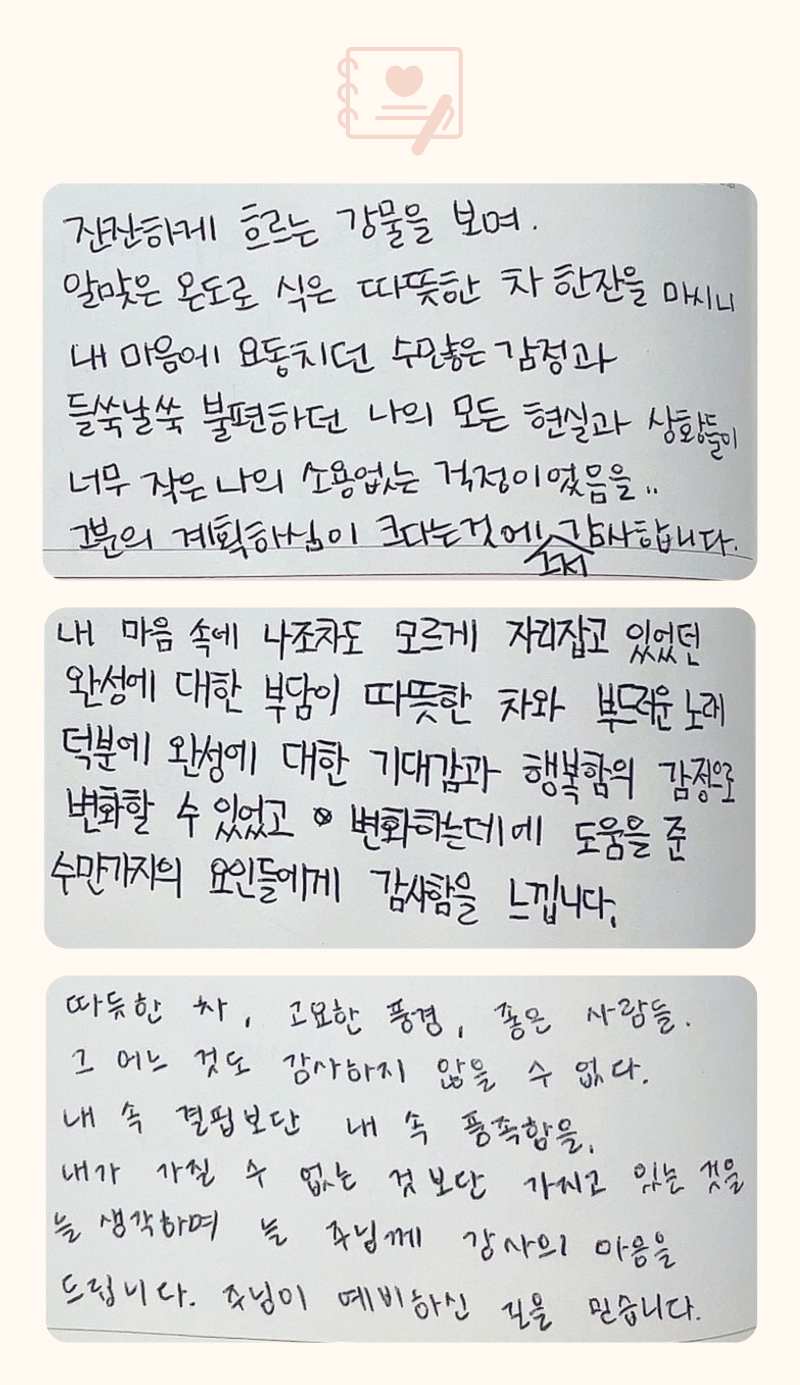 잔잔하게 흐르는 강물을 보며.
알맞은 온도로 식은 따뜻한 차 한잔을 마시니
내 마음에 요동치던 수많은 감정과
들쑥날쑥 불편하던 나의 모든 현실과 상황들이
너무 작은 나의 소용없는 걱정이었음을..
그분의 계획하심이 크다는것에 그저 감사합니다.
내 마음 속에 나조차도 모르게 자리잡고 있었던
완성에 대한 부담이 따뜻한 차와 부드러운 노래
덕분에 완성에 대한 기대감과 행복함의 감정으로
변화할 수 있었고 변화하는데에 도움을 준
수만가지의 요인들에게 감사함을 느낍니다.
따듯한 차, 고요한 풍경, 좋은 사람들.
그 어느 것도 감사하지 않을 수 없다.
내 속 결핍보단 내 속 풍족함을,
내가 가질 수 없는 것보단 가지고 있는 것을
늘 생각하며 늘 주님께 감사의 마음을
드립니다. 주님이 예비하신 길을 믿습니다.